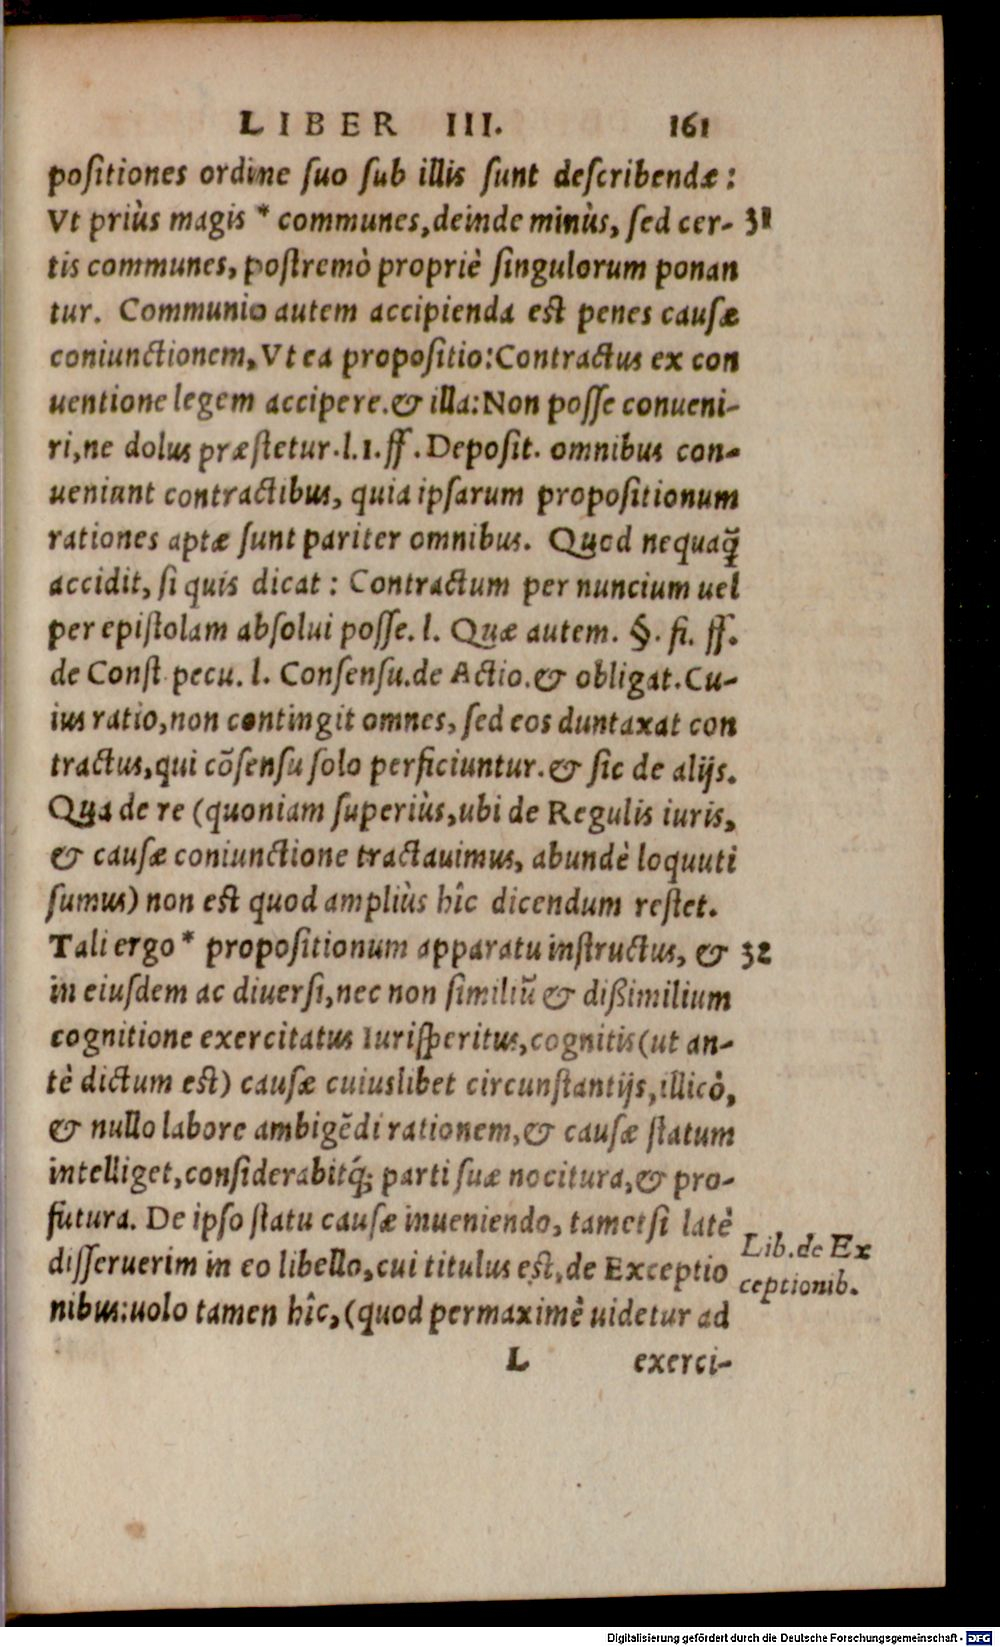 LIBER III. 161
positiones ordine suo sub illis sunt describendæ:
Vt priùs magis * communes, deinde minùs, sed cer- 31
tis communes, postremò propriè singulorum ponan
tur. Communio autem accipienda est penes causæ
coniunctionem, Vt ea propositio: Contractus ex con
uentione legem accipere. & illa: Non posse conueni-
ri, ne dolus præstetur. l. 1. ff. Deposit. omnibus con-
ueniunt contractibus, quia ipsarum propositionum
rationes aptæ sunt pariter omnibus. Quod nequaq̃
accidit, si quis dicat: Contractum per nuncium uel
per epistolam absolui posse. l. Quæ autem. §. fi. ff.
de Const pecu. l. Consensu. de Actio. & obligat. Cu-
ius ratio, non contingit omnes, sed eos duntaxat con
tractus, qui cõsensu solo perficiuntur. & sic de alijs.
Qua de re (quoniam superiùs, ubi de Regulis iuris,
& causæ coniunctione tractauimus, abundè loquuti
sumus) non est quod ampliùs hîc dicendum restet.
Tali ergo * propositionum apparatu instructus, & 32
in eiusdem ac diuersi, nec non similiũ & dißimilium
cognitione exercitatus Iurisperitus, cognitis (ut an-
tè dictum est) causæ cuiuslibet circunstantijs, illicò,
& nullo labore ambigẽdi rationem, & causæ statum
intelliget, considerabitq́; parti suæ nocitura, & pro-
futura. De ipso statu causæ inueniendo, tametsi latè
disseruerim in eo libello, cui titulus est, de Exceptio
nibus: uolo tamen hîc, (quod permaximè uidetur ad
Lib. de Ex
ceptionib.
L exerci-
Digitalisierung gefördert durch die Deutsche Forschungsgemeinschaft - DFG